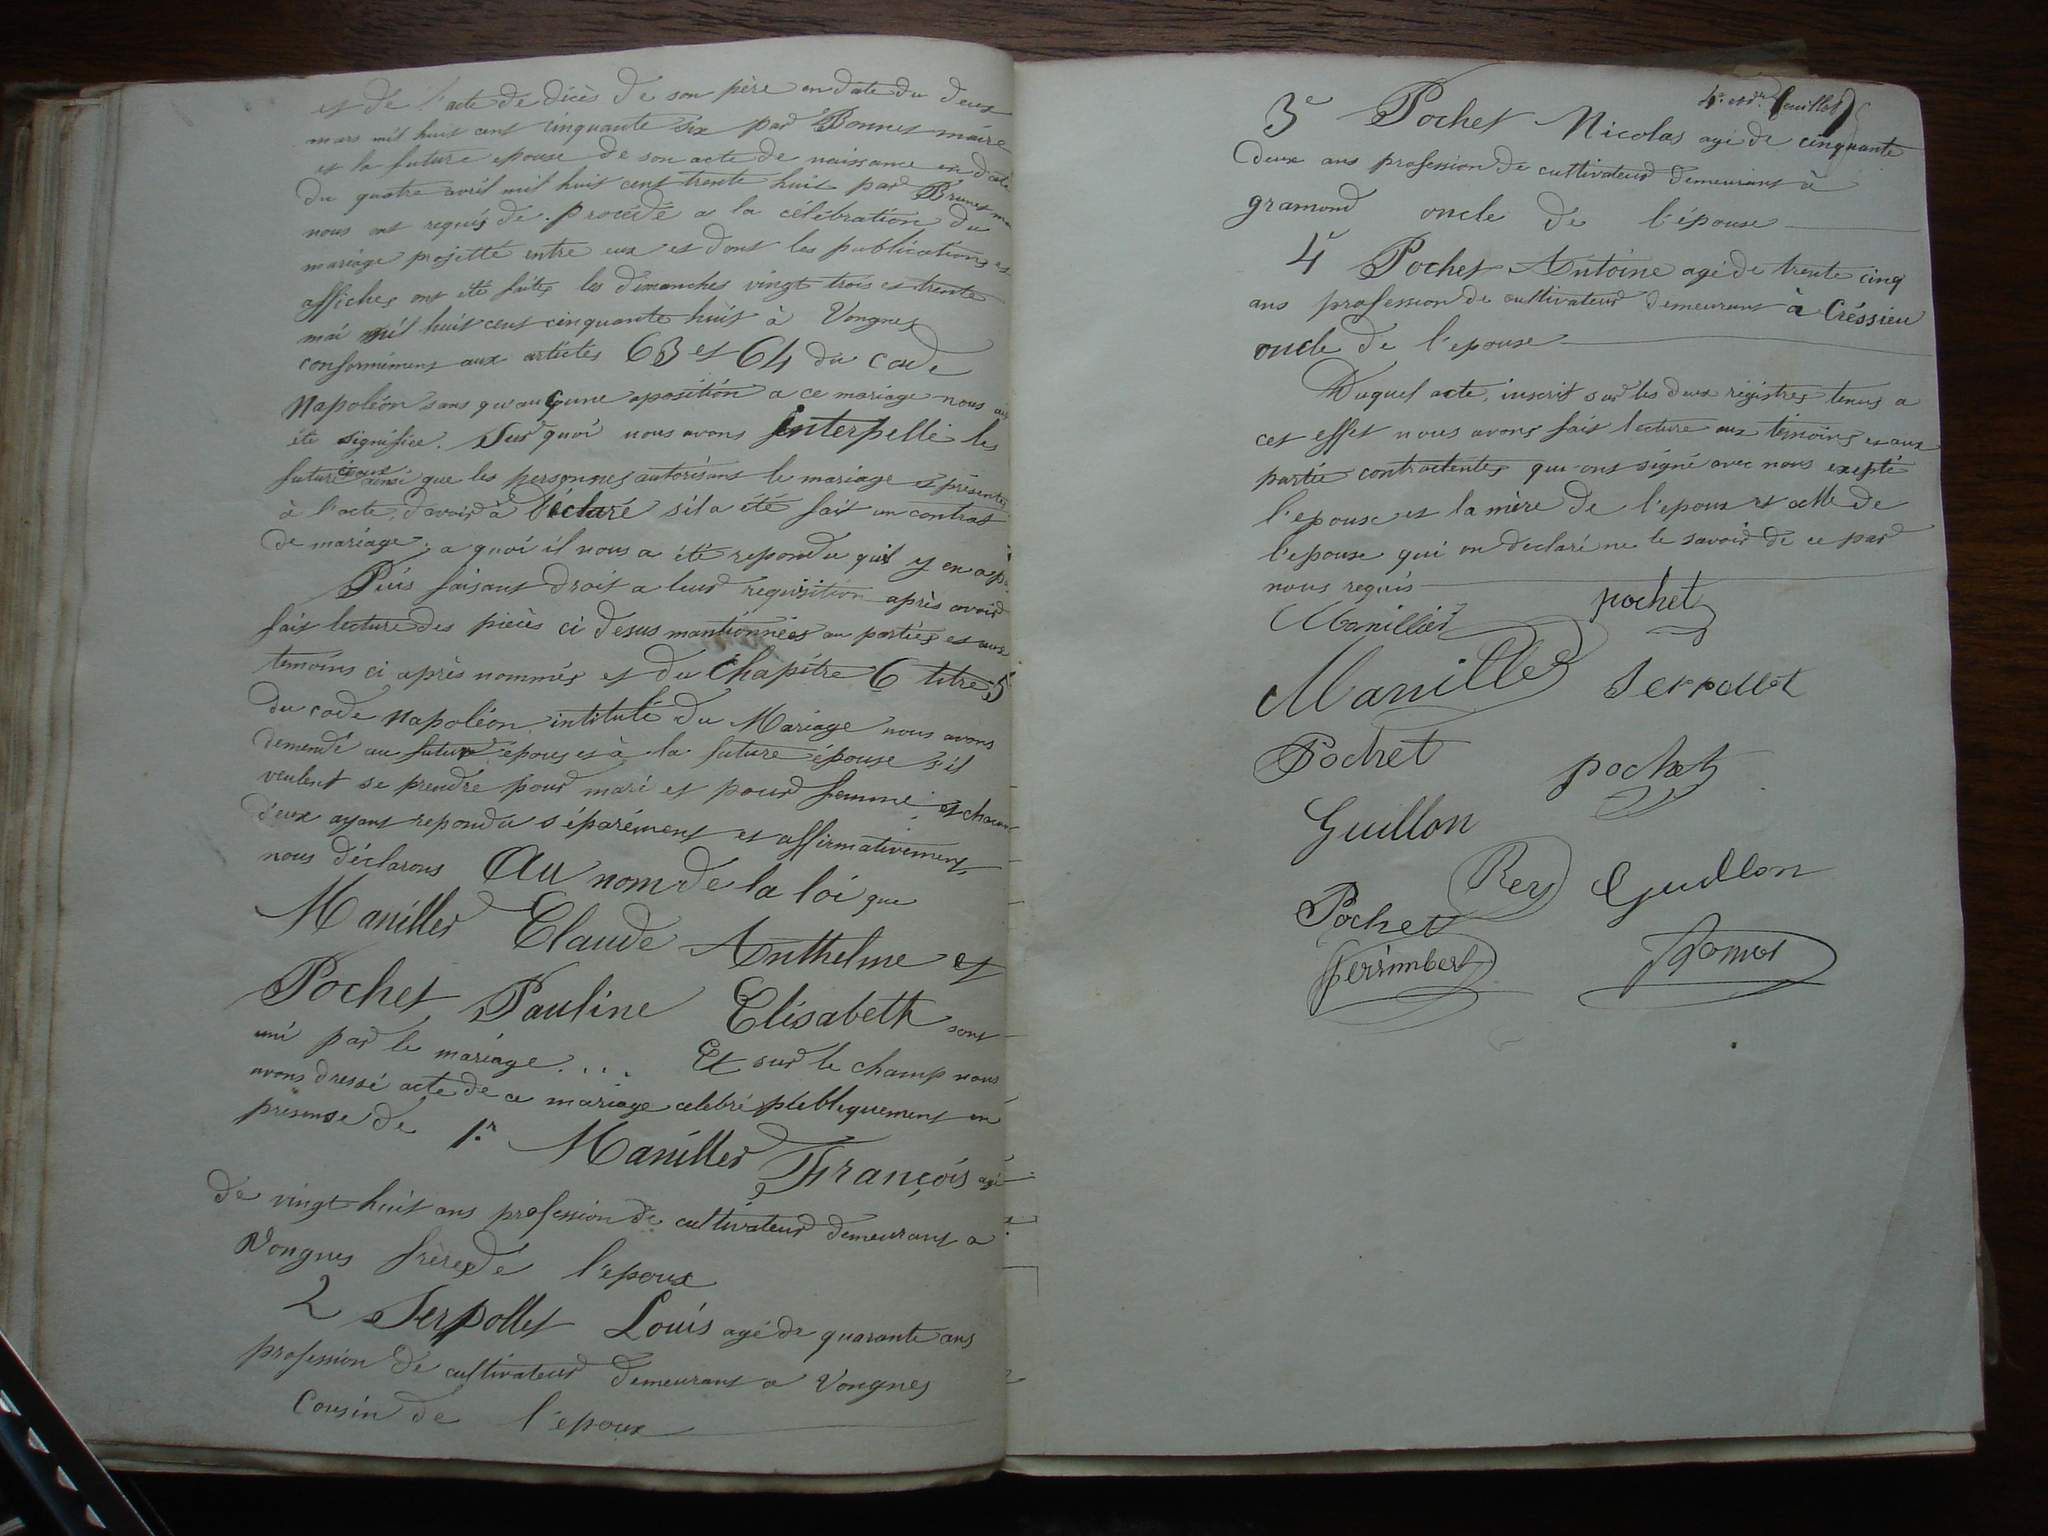 et de l'acte de décès de son père en date du deux
mars mil huit cent cinquante six par Bonnet maire
et la future epouse de son acte de naissance en date
du quatre avril mil huit cent trente huit par Brunet
nous ont requis de procédé a la célébration du
mariage projetté entre eux et dont les publications et
affiches ont été faites les dimanches vingt trois et trente
mai mil huit cent cinquante huit à Vongnes
conformément aux articles 63 et 64 du code
Napoléon sans qu'aucune oposition a ce mariage nous ait
été signifiée. Sur quoi nous avons interpellé les
futurs époux ainsi que les personnes autorisant le mariage et présentes
à l'acte, d'avoir à déclaré s'il a été fait un contrat
de mariage; a quoi il nous a été repondu qu'il y en a pas
Puis faisant droit a leur requisition après avoir
fait lecture des pièces ci desus mantionnées au parties et aux
temoins ci après nommés et du chapitre 6 titre 5
du code Napoléon intitulé du Mariage nous avons
demendé au futur époux et à la future épouse s'il
veulent se prendre pour mari et pour femme; et chacun
d'eux ayant repondu séparément et affirmativement,
nous déclarons Au nom de la loi que
Maniller Claude Anthelme et
Pochet Pauline Elisabeth sont
uni par le mariage.... Et sur le champ nous
avons dressé acte de ce mariage celebré plebliquement en
presense de 1.r Maniller François agé
de vingt huit ans profession de cultivateur demeurant a
Vongnes frère de l'epoux
2 Serpollet Louis agé de quarante ans
profession de cultivateur demeurant a Vongnes
Cousin de l'epoux
4e et dr. feuillet
3e Pochet Nicolas agé de cinquante
deux ans profession de cultivateur demeurant à
gramond oncle de l'épouse
4e Pochet Antoine agé de trente cinq
ans profession de cultivateur demeurant à Créssieu
oncle de l'epouse
Duquel acte, inscrit sur les deux régistres tenus a
cet effet nous avons fait lecture aux témoins et aux
partie contractentes qui ont signé avec nous exepté
l'epouse et la mère de l'epoux et celle de
l'epouse qui on declaré ne le savoir de ce par
nous requis
Manillier pochet
Maniller Serpollet
Pochet pochet
Guillon
Rey Guillon
Pochet
Perrimbert